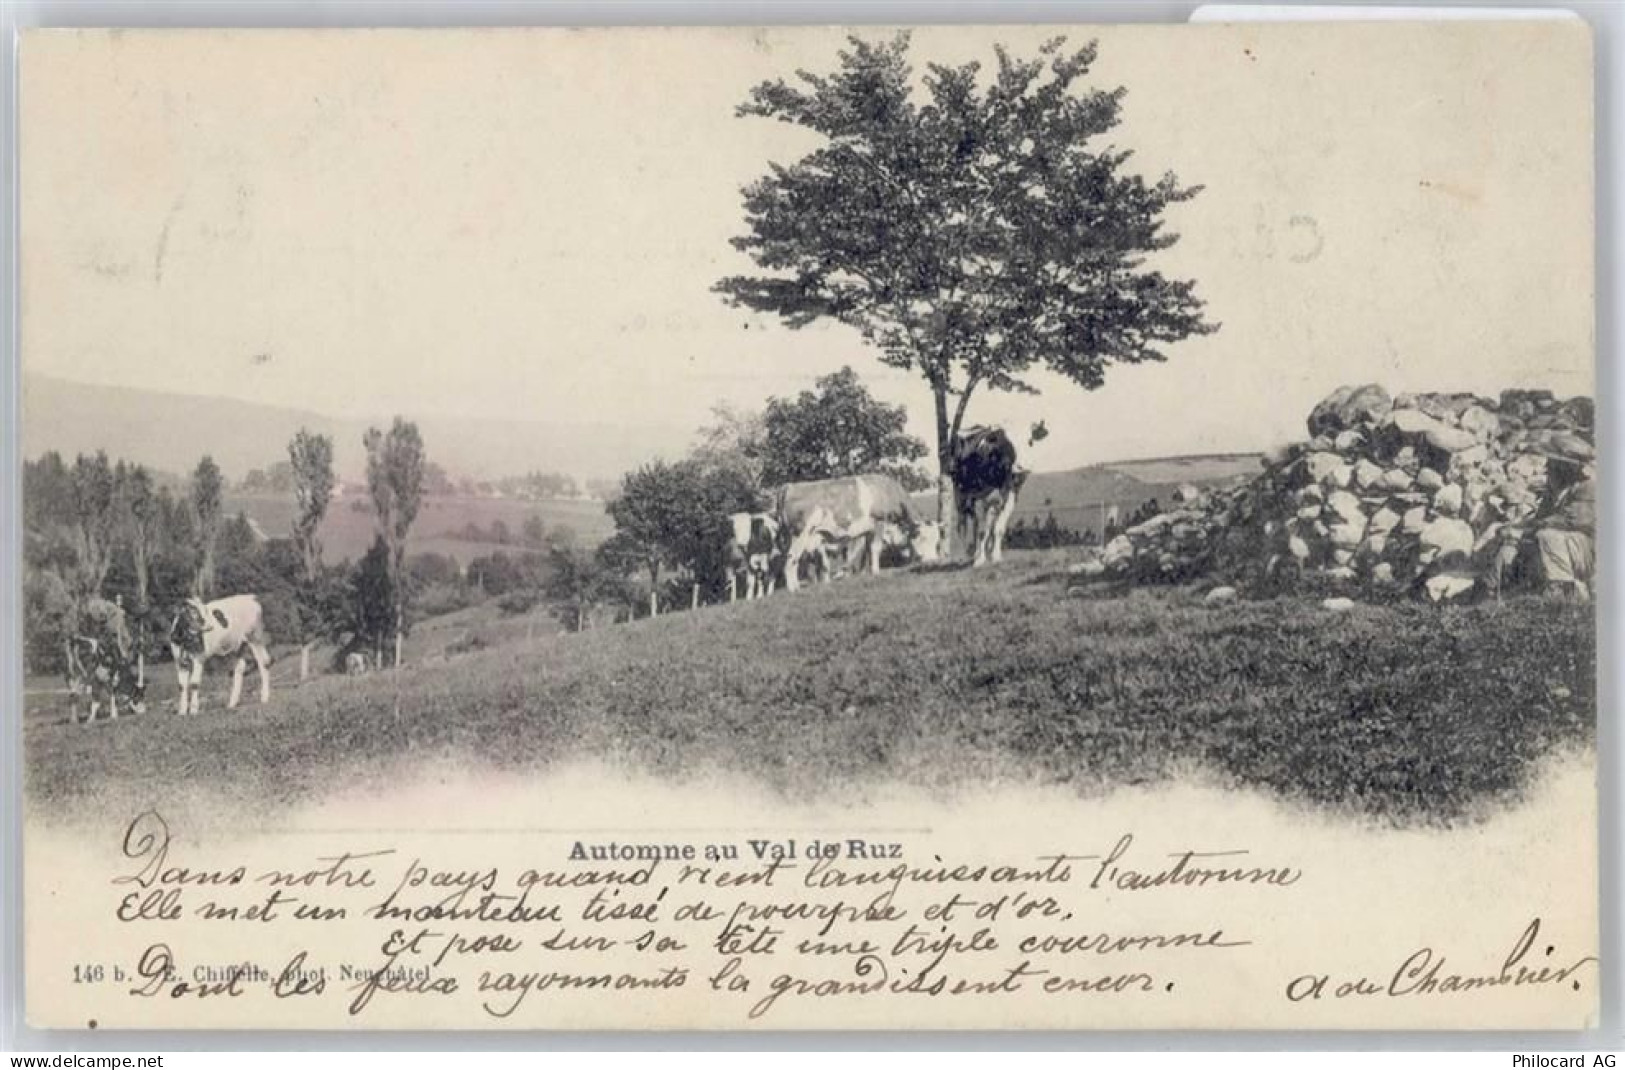 Automne au Val de Ruz
Dans notre pays quand vient languissante l'automne
Elle met un manteau tissé de pourpre et d'or,
Et pose sur sa tête une triple couronne
146 b. E. Chiffelle, phot. Neuchâtel
Dont les feux rayonnants la grandissent encor.
A de Chambrier.
www.delcampe.net
Philocard AG